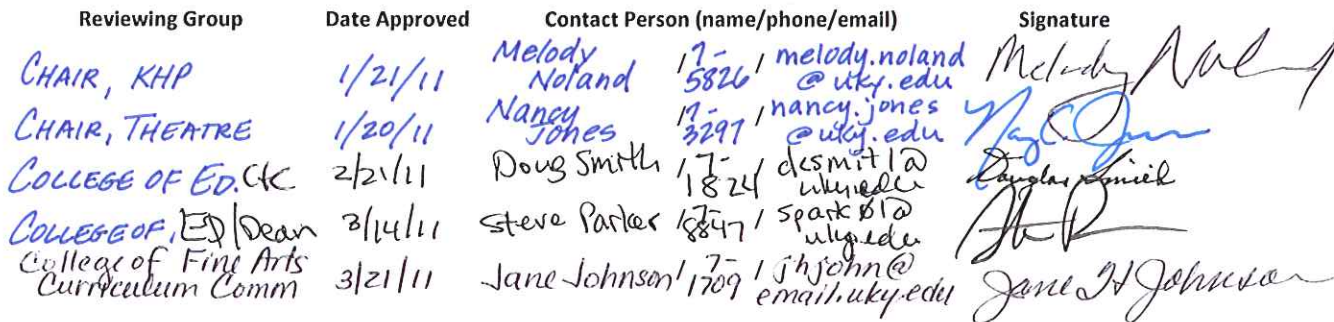 Reviewing Group Date Approved Contact Person (name/phone/email) Signature
CHAIR, KHP 1/21/11 Melody Noland / 7-5826 / melody.noland@uky.edu Melody Noland
CHAIR, THEATRE 1/20/11 Nancy Jones / 7-3297 / nancy.jones@uky.edu Nancy C. Jones
COLLEGE OF ED. C&C 2/21/11 Doug Smith / 7-1824 / dcsmit1@uky.edu Douglas Smith
COLLEGE OF, ED/Dean 3/14/11 Steve Parker / 7-8847 / spark01@uky.edu
College of Fine Arts Curriculum Comm 3/21/11 Jane Johnson / 7-1709 / jhjohn@email.uky.edu Jane H Johnson